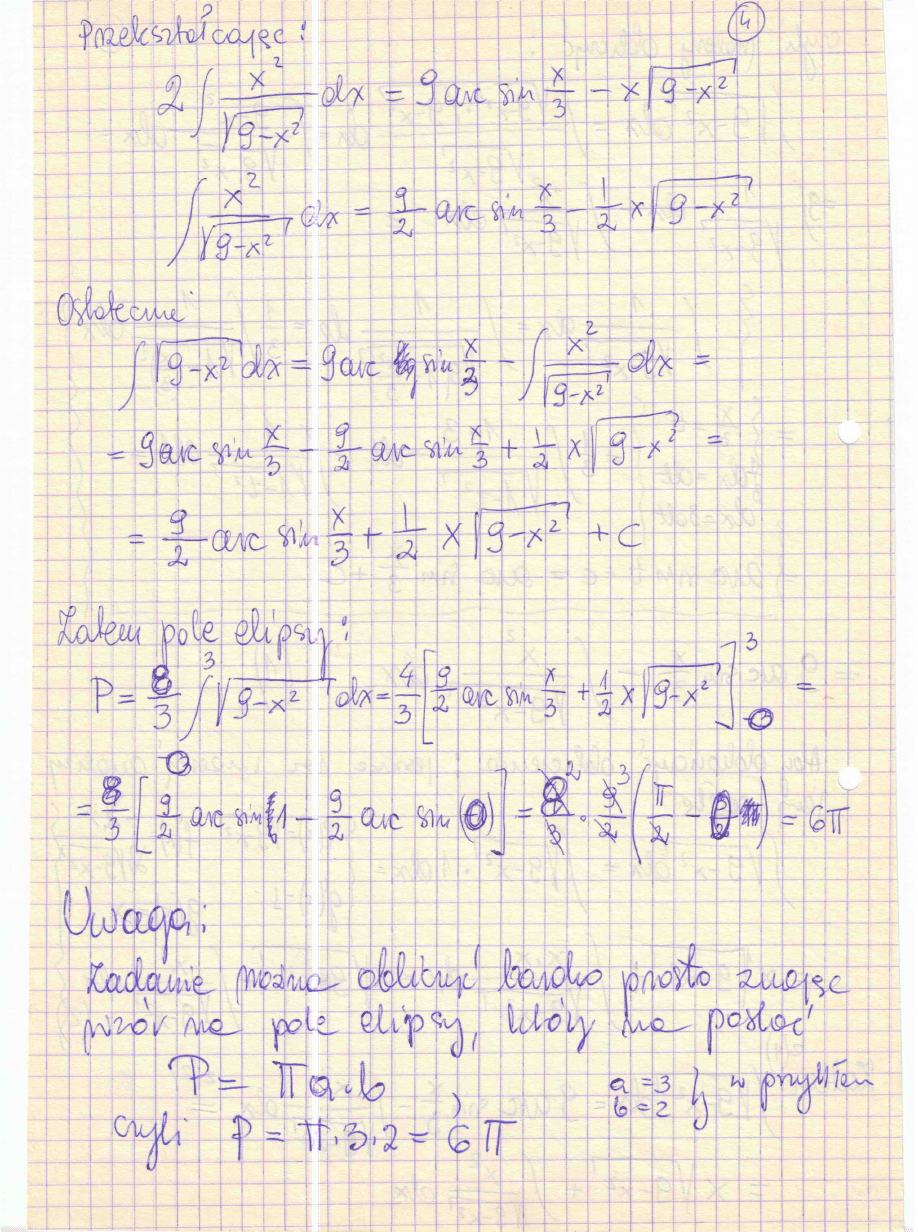 4
Przekształcając:
2∫ x²/√(9-x²) dx = 9 arc sin x/3 - x√(9-x²)
∫ x²/√(9-x²) dx = 9/2 arc sin x/3 - 1/2 x√(9-x²)
Ostatecznie
∫√(9-x²) dx = 9 arc sin x/3 - ∫ x²/√(9-x²) dx =
= 9 arc sin x/3 - 9/2 arc sin x/3 + 1/2 x√(9-x²) =
= 9/2 arc sin x/3 + 1/2 x√(9-x²) + C
Zatem pole elipsy:
P = 8/3 ∫₀³ √(9-x²) dx = 4/3 [9/2 arc sin x/3 + 1/2 x√(9-x²)]₀³ =
= 8/3 [9/2 arc sin 1 - 9/2 arc sin (0)] = 8/3 · 9/2 (π/2 - 0) = 6π
Uwaga:
Zadanie można obliczyć bardzo prosto znając
wzór na pole elipsy, który ma postać
P = πa·b, a = 3 b = 2 } w przykładzie
czyli P = π·3·2 = 6π